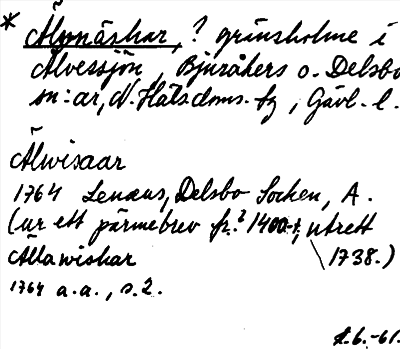 * Älvnäshar, ? grinsholme i
Älvessjön, Bjuråkers o. Delsbo
sn:ar, N. Häls doms. fg, Gävl. l.
Älwisaar
1764 Lenæus, Delsbo Socken, A.
(ur ett pärmebrev fr.? 1400-t, utrett
Ällawishar 1738.)
1764 a.a., s. 2.